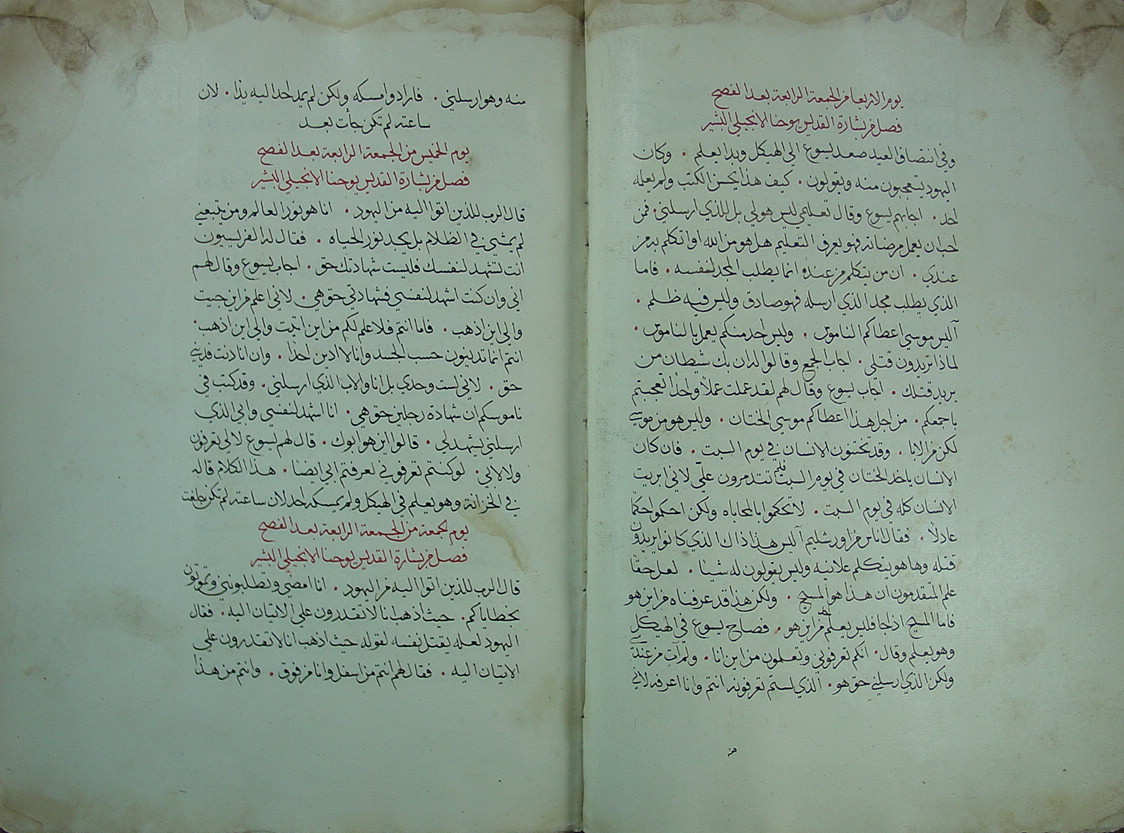 يوم الاربعا من الجمعة الرابعة بعد الفصح
فصل من بشارة القديس يوحنا الانجيلي البشير
وفي انتصاف العيد صعد يسوع الي الهيكل وبدا يعلم . وكان
اليهود يتعجبون منه ويقولون . كيف هذا يحسن الكتب ولم يعلمه
احد . اجابهم يسوع وقال تعليمي ليس هو لي بل للذي ارسلني . فمن
احب ان يعمل مرضاته فهو يعرف التعليم هل هو من الله او اتكلم به من
عندي . ان من يتكلم من عنده انما يطلب المجد لنفسه . فاما
الذي يطلب مجد الذي ارسله فهو صادق وليس فيه ظلم .
آليس موسي اعطاكم الناموس . وليس احد منكم يعمل بالناموس .
لماذا تريدون قتلي . اجاب الجمع وقالوا له ان بك شيطان من
يريد قتلك . اجاب يسوع وقال لهم لقد عملت عملا واحدا فتعجبتم
باجمعكم . من اجل هذا اعطاكم موسي الختان . وليس هو من موسي
لكن من الابا . وقد تختنون الانسان في يوم السبت . فان كان
الانسان ياخذ الختان في يوم السبت فلم تتدمرون علي لاني ابريت
الانسان كله في يوم السبت . لا تحكموا بالمحاباه ولكن احكموا حكما
عادلا . فقال اناس من اورشليم آليس هذا ذاك الذي كانوا يريدون
قتله وها هو يتكلم علانيه وليس يقولون له شيا . لعل حقا
علم المتقدمون ان هذا هو المسيح . ولكن هذا قد عرفناه من اين هو
فاما المسيح اذا جا فليس يعلم احد من اين هو . فصاح يسوع في الهيكل
وهو يعلم وقال . انكم تعرفوني وتعلمون من اين انا . ولم ات من عندي
ولكن الذي ارسلني حق هو . الذي لستم تعرفونه انتم وانا اعرفه لاني
منه
منه وهو ارسلني . فارادوا مسكه ولكن لم يمد احد اليه يدا . لان
ساعته لم تكن جأت بعد
يوم الخميس من الجمعة الرابعة بعد الفصح
فصل من بشارة القديس يوحنا الانجيلي البشير
قال الرب للذين اتوا اليه من اليهود . انا هو نور العالم ومن تبعني
لم يمشي في الظلام بل يجد نور الحياه . فقال له الفريسيون
انت تشهد لنفسك فليست شهادتك حق . اجاب يسوع وقال لهم
اني وان كنت اشهد لنفسي فشهادتي حق هي . لاني اعلم من اين جيت
والي اين اذهب . فاما انتم فلا علم لكم من اين اتيت والي اين اذهب .
انتم انما تدينون حسب الجسد وانا لا ادين احدا . وان انا دنت فديني
حق . لاني لست وحدي بل انا والاب الذي ارسلني . وقد كتب في
ناموسكم ان شهادة رجلين حق هي . انا اشهد لنفسي وابي الذي
ارسلني يشهد لي . قالوا اين هو ابوك . قال لهم يسوع لا لي تعرفون
ولا لابي . لو كنتم تعرفوني لعرفتم ابي ايضا . هذا الكلام قاله
في الخزانة وهو يعلم في الهيكل ولم يمسكه احد لان ساعته لم تكن بلغت
يوم الجمعة من الجمعة الرابعة بعد الفصح
فصل من بشارة القديس يوحنا الانجيلي البشير
قال الرب للذين اتوا اليه من اليهود . انا امضي وتطلبونني وتموتون
بخطاياكم . حيث اذهب انا لا تقدرون علي الاتيان اليه . فقال
اليهود لعله يقتل نفسه لقوله حيث اذهب انا لا تقدرون علي
الاتيان اليه . فقال لهم انتم من اسفل وانا من فوق . وانتم من هذا